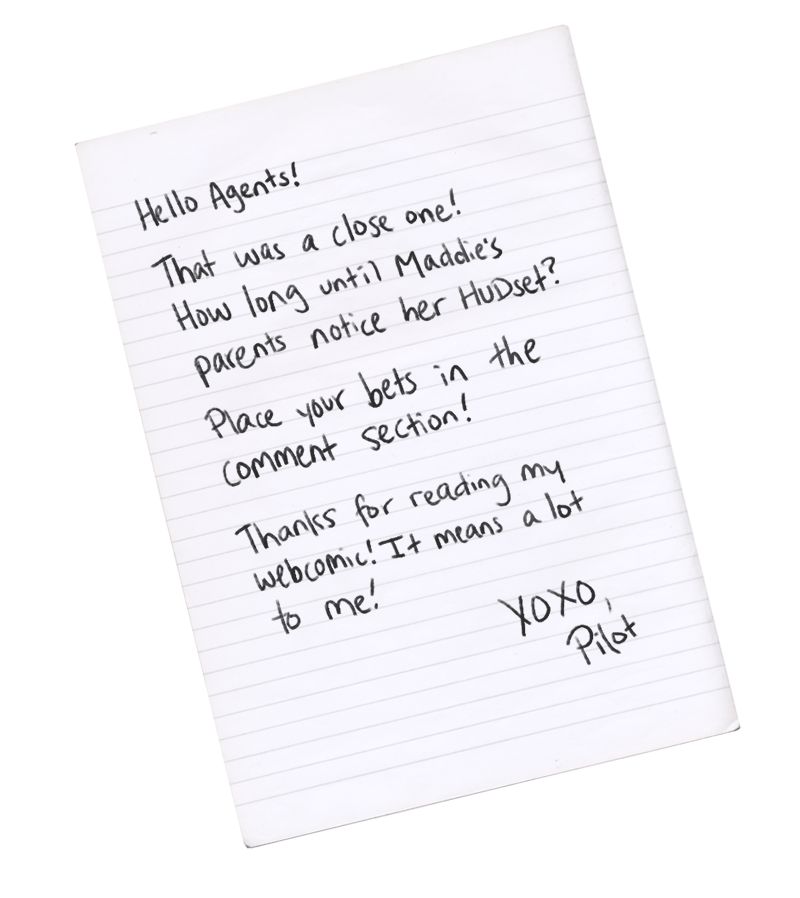 Hello Agents!
That was a close one!
How long until Maddie's
parents notice her HUDset?
Place your bets in the
comment section!
Thanks for reading my
webcomic! It means a lot
to me!
XOXO,
Pilot